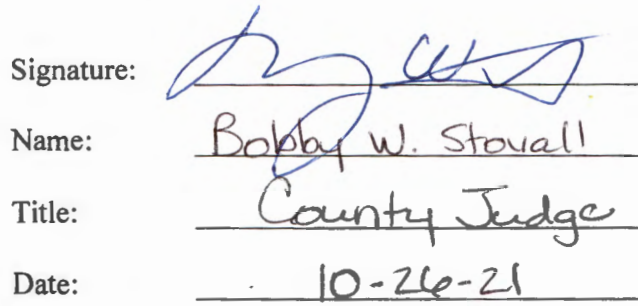 Signature:
Name: Bobby W. Stovall
Title: County Judge
Date: 10-26-21